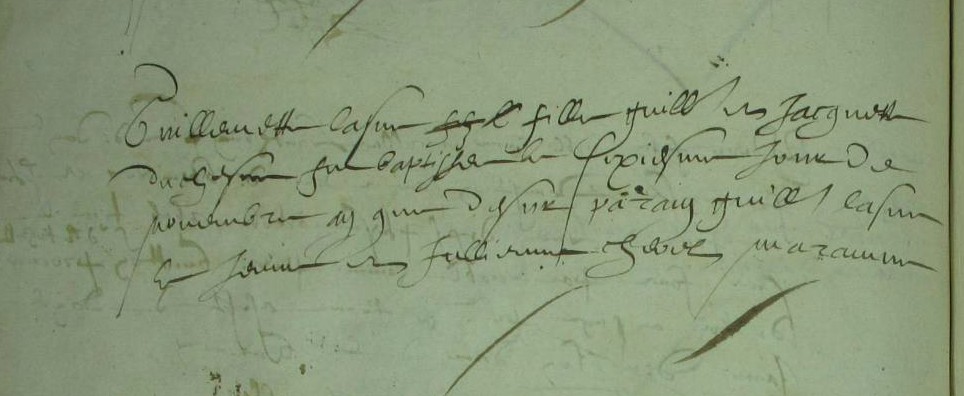 Guillemette lasne fille guill et Jacquette
duchesne fut baptissee le sixiesme Jour de
novembre an que dessus parain guill lasne
le Jeune et Jullienne maraine